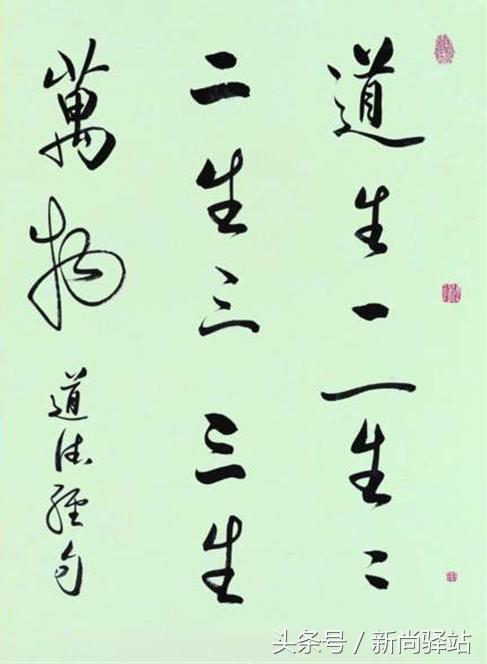 道生一一生二
二生三三生
萬物
道德經句
头条号 / 新尚驿站